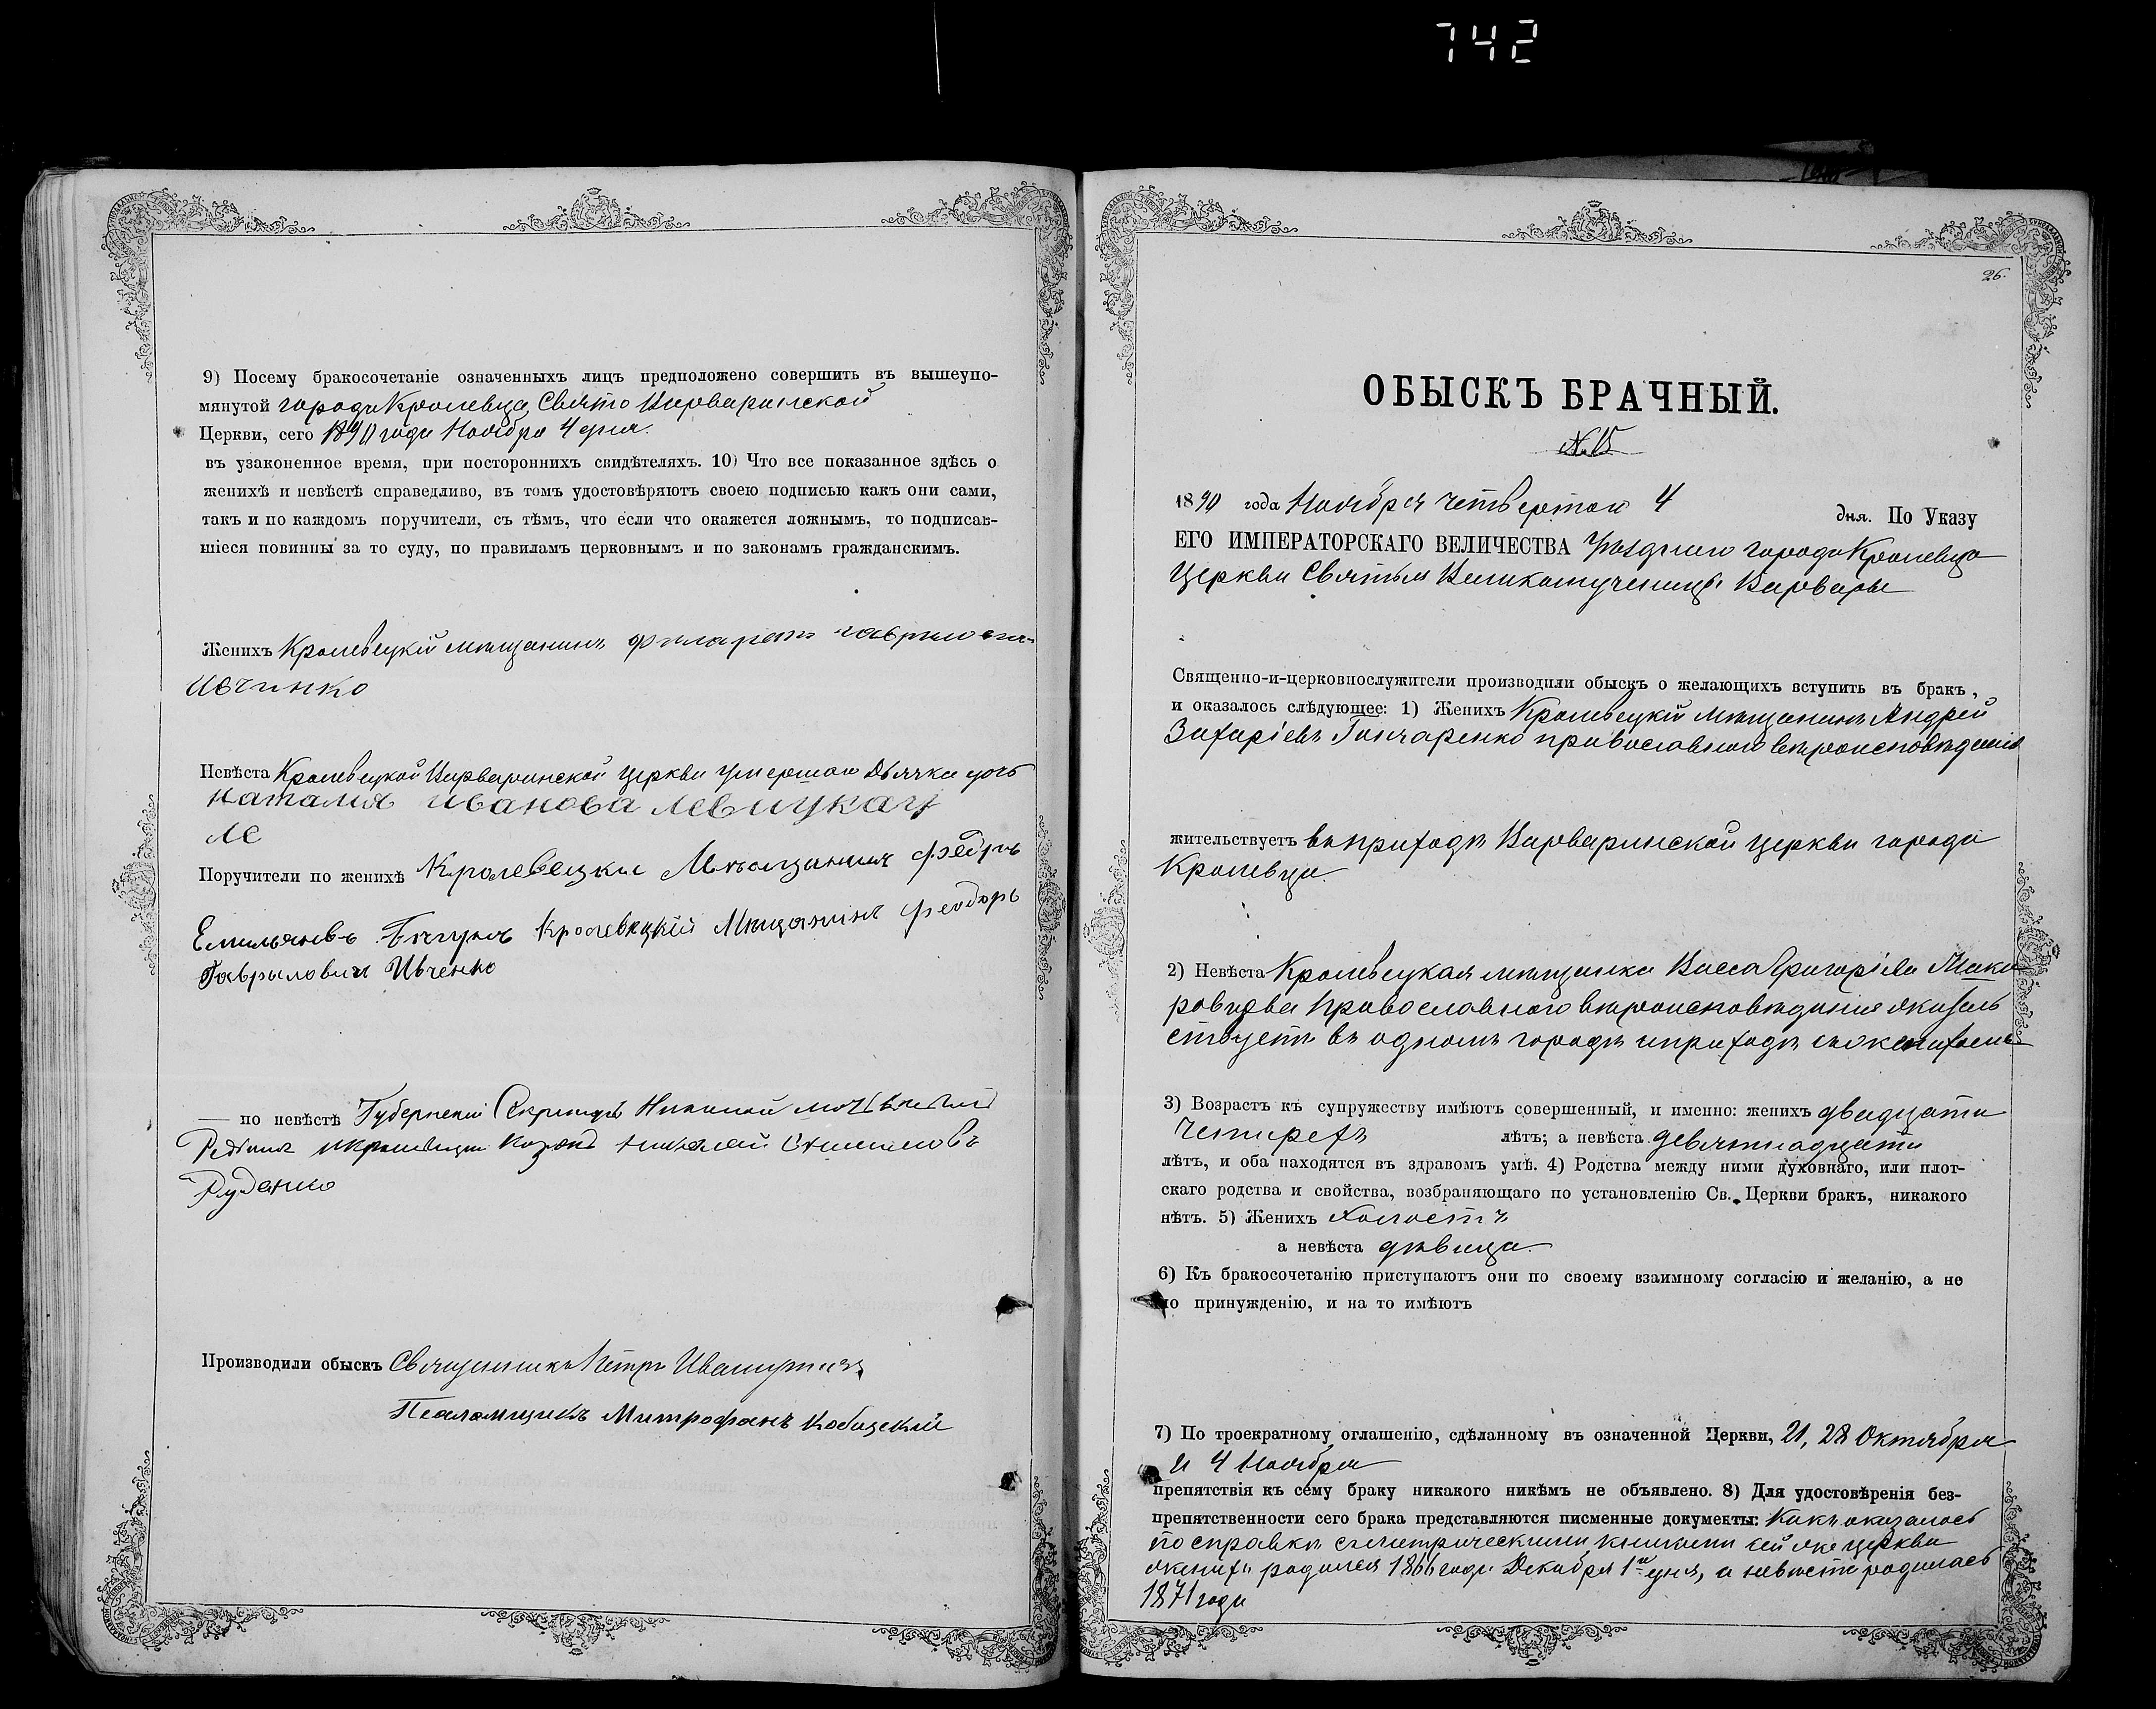 742
9) Посему бракосочетаніе означенныхъ лицъ предположено совершить въ вышеупо-
мянутой города Кролевца, Свято Варваринской
Церкви, сего 1890 года Ноября 4 дня.
въ узаконенное время, при постороннихъ свидѣтеляхъ. 10) Что все показанное здѣсь о
женихѣ и невѣстѣ справедливо, въ томъ удостовѣряютъ своею подписью какъ они сами,
такъ и по каждомъ поручители, съ тѣмъ, что если что окажется ложнымъ, то подписав-
шіеся повинны за то суду, по правиламъ церковнымъ и по законамъ гражданскимъ.
Женихъ Кролевецкій мѣщанинъ Филаретъ
Ивчинко
Невѣста Кролевецкой Варваринской церкви умершаго Дьячка дочь
Наталия Иванова Левицкая
Ле
Поручители по женихѣ Кролевецки Мѣщанинъ Федоръ
Емельяновъ Кролевецкій Мѣщанинъ Феодоръ
Гаврылович Ивченко
— по невѣстѣ Губернскій Секретарь Николай
козакъ Николай
Руденко
Производили обыскъ Священникъ Петръ
Псаломщикъ Митрофанъ Кобизскій
26.
ОБЫСКЪ БРАЧНЫЙ.
№ 15
1890 года Ноября четвертого 4 дня. По Указу
ЕГО ИМПЕРАТОРСКАГО ВЕЛИЧЕСТВА Уѣзднаго города Кролевца
Церкви Святыя Великомученицы Варвары
Священно-и-церковнослужители производили обыскъ о желающихъ вступить въ бракъ,
и оказалось слѣдующее: 1) Женихъ Кролевецкій мѣщанинъ Андрей
Захаріевъ Гончаренко православного вѣроисповѣданія
жительствуетъ въ приходѣ Варваринской церкви города
Кролевца
2) Невѣста Кролевецкая мѣщанка Васса Григоріева Мака-
православного вѣроисповѣданія житель
ствуетъ въ одномъ городѣ и приходѣ съ женихомъ
3) Возрастъ къ супружеству имѣютъ совершенный, и именно: женихъ двадцати
четырехъ лѣтъ; а невѣста девятнадцати
лѣтъ, и оба находятся въ здравомъ умѣ. 4) Родства между ними духовнаго, или плот-
скаго родства и свойства, возбраняющаго по установленію Св. Церкви бракъ, никакого
нѣтъ. 5) Женихъ холостъ
а невѣста дѣвица.
6) Къ бракосочетанію приступаютъ они по своему взаимному согласію и желанію, а не
по принужденію, и на то имѣютъ
7) По троекратному оглашенію, сдѣланному въ означенной Церкви, 21, 28 Октября
и 4 Ноября
препятствія къ сему браку никакого никѣмъ не объявлено. 8) Для удостовѣренія без-
препятственности сего брака представляются писменные документы: Какъ оказалось
по справкѣ съ метрическими книгами сей же церкви
женихъ родился 1866 года Декабря 1го дня, а невѣста родилась
1871 года